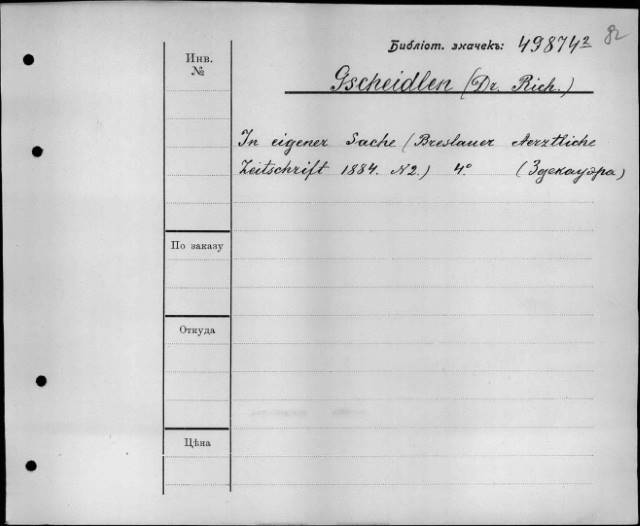 Библіот. значекъ: 49874²
82
Инв.
№
Gscheidlen (Dr. Rich.)
In eigener Sache (Breslauer Aerztliche
Zeitschrift 1884. N2.) 4° (Здекауэра)
По заказу
Откуда
Цѣна